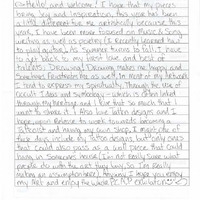 Hello, and welcome! I hope that my pieces
bring joy and inspiration, this year has been
a little different for me artistically because this
year, I have been more focused on Music & Song
writing as well as poetry. (I Recently learned how
to play guitar). As Summer turns to fall, I have
to get back to my first love and first of
talents: Drawing! Drawing makes me happy and
Sometimes frustrates me as well. In most of my Artwork
I tend to express my Spirituality, Through the use of
Occult Ideas and symbology - which is often linked
through my heritage and I love that so much that I
want to share it. I Also love tattoo designs and I
hope, upon Release to work towards becoming a
Tattooist and having my own Shop. I might one of
these days, include my tattoo designs, but only ones
that could also pass as a wall piece that could
hang in Someones house (I'm not really sure what
people do with the art they buy, So I'm also
making an assumption here). Anyway I hope you enjoy
my Art and enjoy the whole P.C.A.P exhibition!